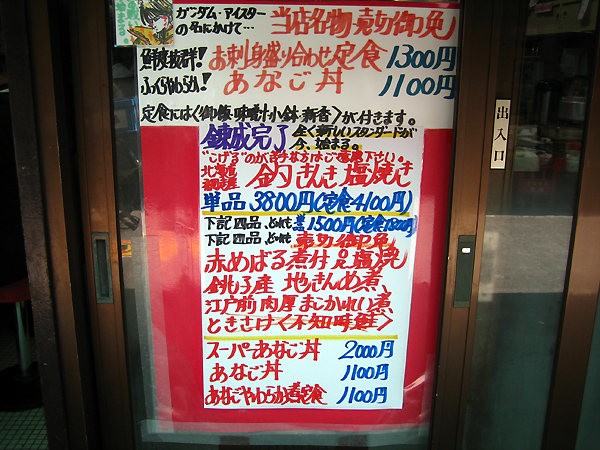 ガンダム・マイスター
の名にかけて… 当店名物・売切御免
鮮度抜群! お刺身盛り合わせ定食 1300円
ふっくらやわらか! あなご丼 1100円
定食には〈御飯・味噌汁・小鉢・新香〉が付きます。
錬成完了 全く新しいスタンダードが
今、始まる。
"こげる"のが苦手な方はご遠慮下さい。
北海道
産 釣きんき塩焼き
単品 3800円(定食4100円)
下記四品、どれでも 単品 1500円(定食1800円)
下記四品、どれも 売切御免
赤めばる煮付 又は 塩焼
銚子産 地きんめ煮
江戸前 肉厚まこがれい煮
ときさけ〈不知時鮭〉
スーパーあなご丼 2000円
あなご丼 1100円
あなごやわらか煮定食 1100円
出入口